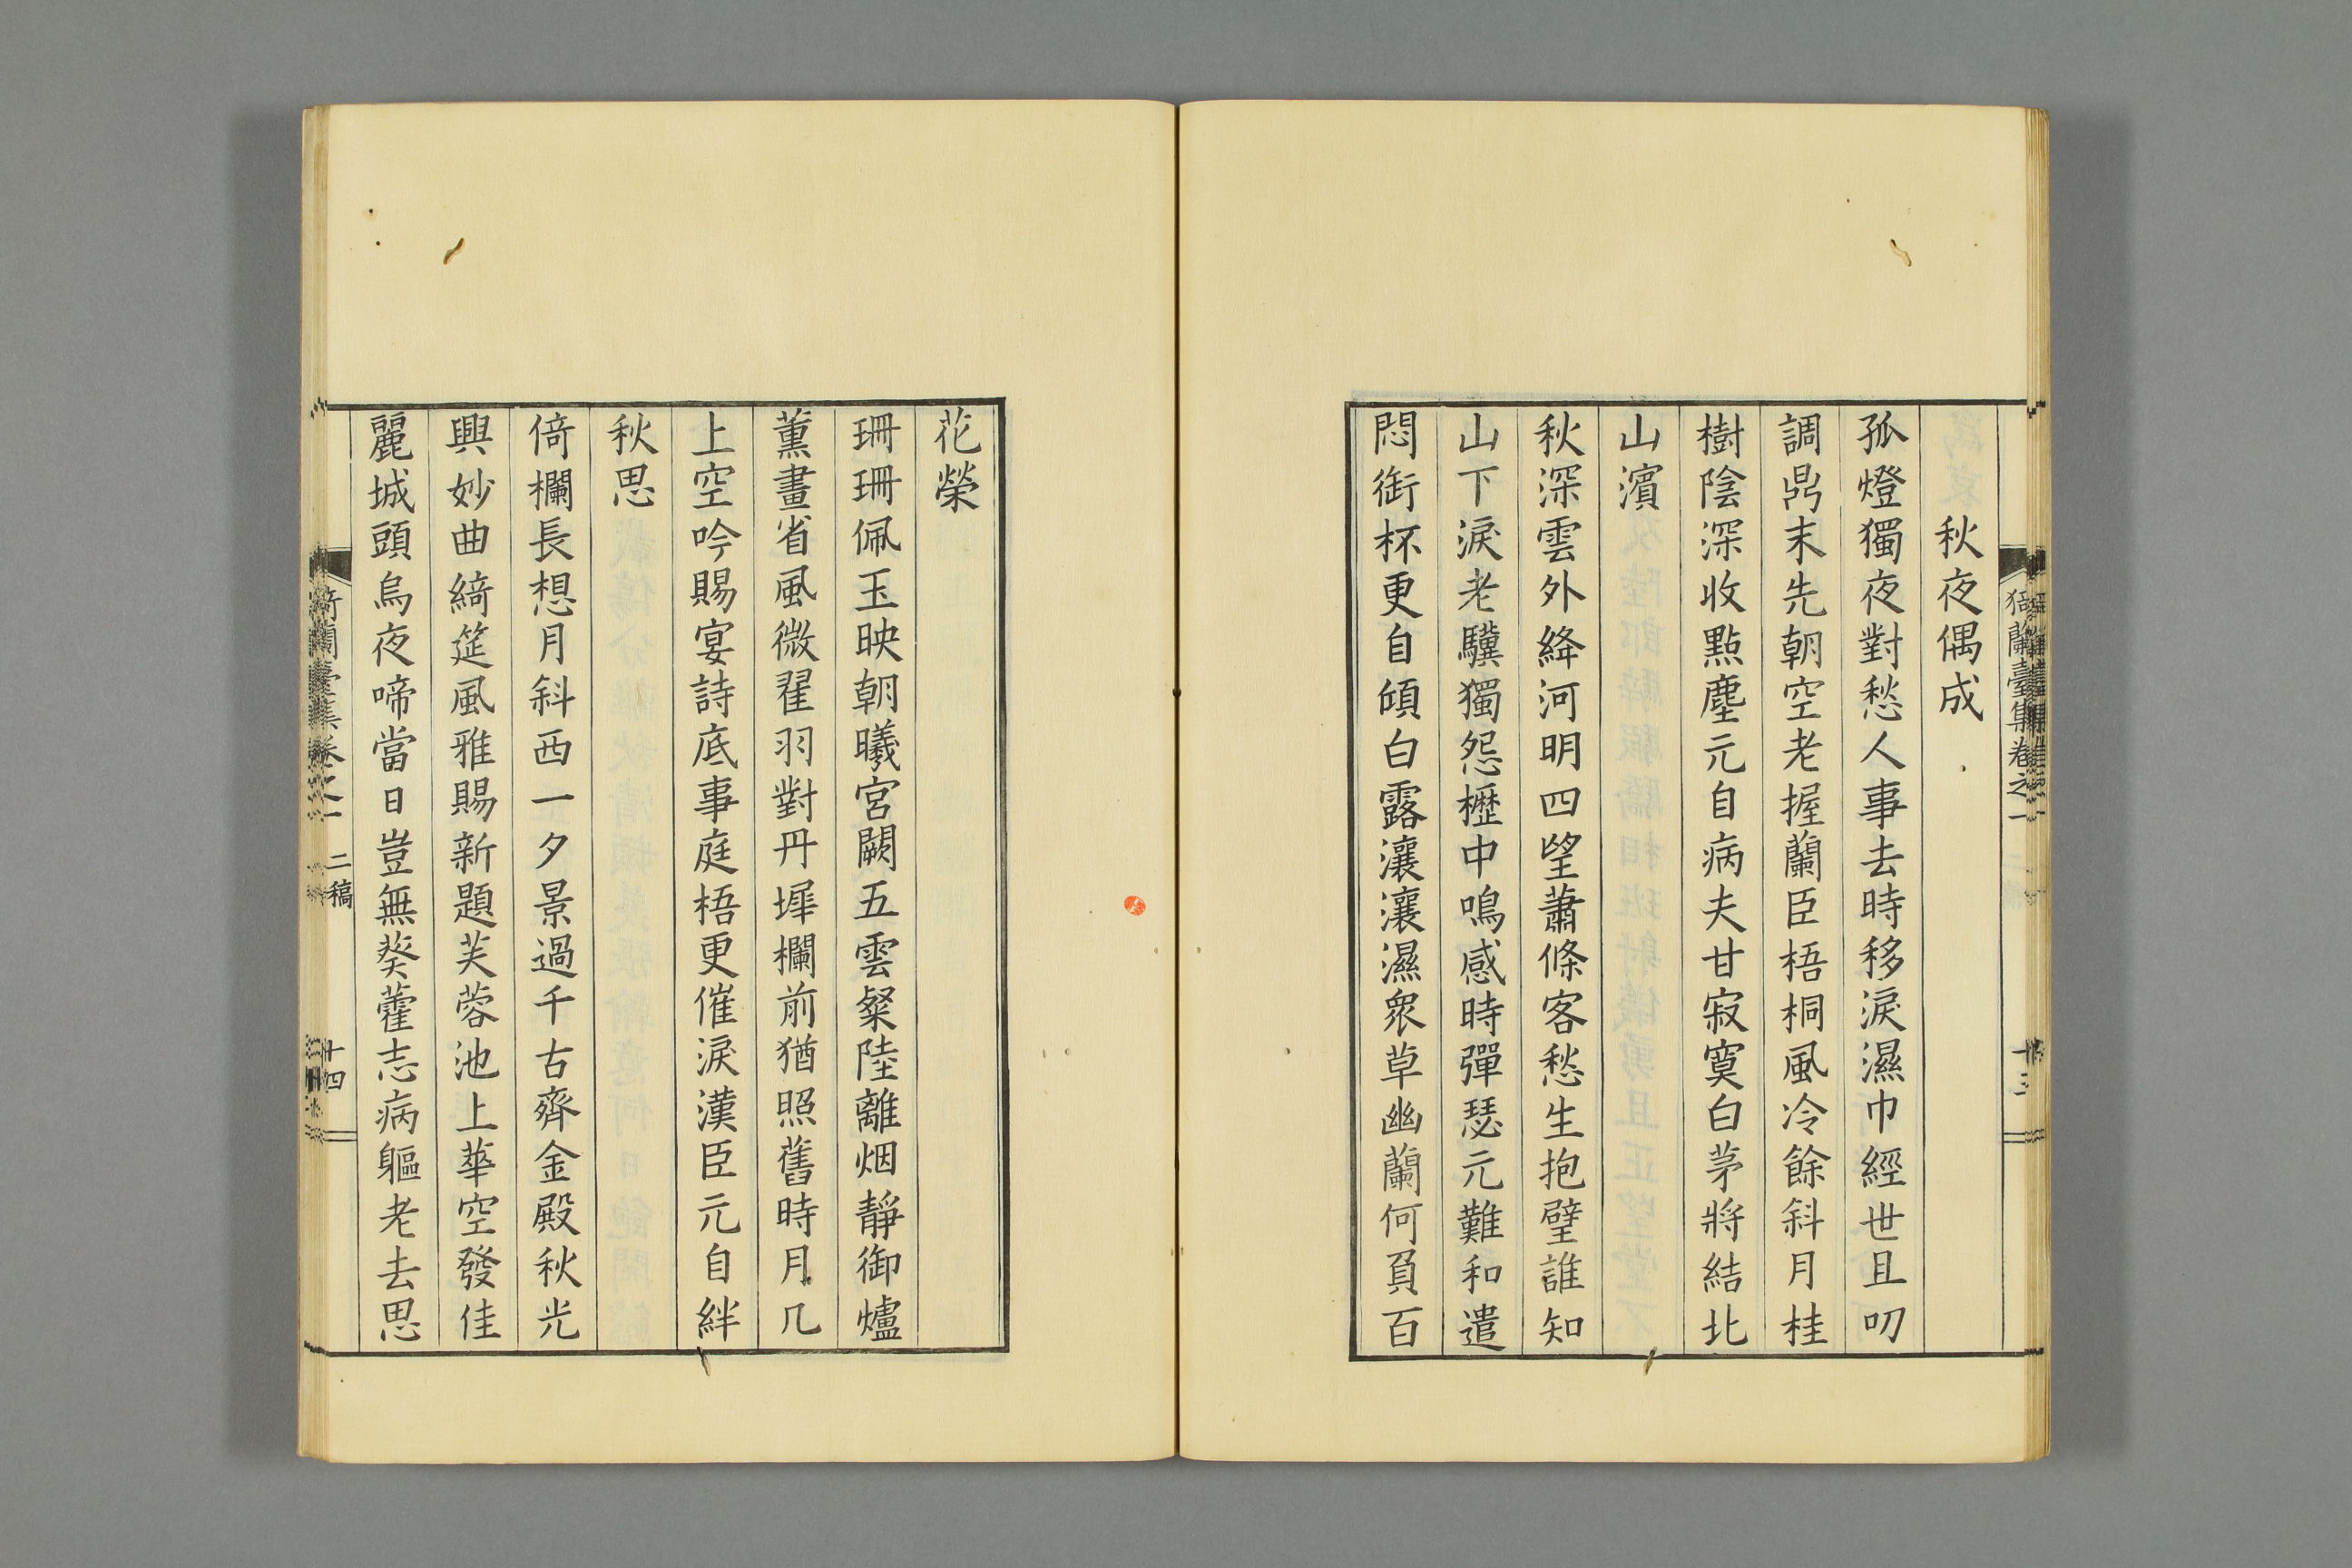 猗蘭臺集卷之一
秋夜偶成
孤燈獨夜對愁人事去時移淚濕巾經世且叨
調鼎末先朝空老握蘭臣梧桐風冷餘斜月桂
樹陰深收點塵元自病夫甘寂寞白茅將結北
山濱
秋深雲外絳河明四望蕭條客愁生抱璧誰知
山下淚老驥獨怨櫪中鳴感時彈瑟元難和遣
悶銜杯更自傾白露瀼瀼濕衆草幽蘭何負百
花榮
珊珊佩玉映朝曦宮闕五雲粲陸離烟靜御爐
薰畫省風微翟羽對丹墀欄前猶照舊時月几
上空吟賜宴詩底事庭梧更催淚漢臣元自絆
秋思
倚欄長想月斜西一夕景過千古齊金殿秋光
興妙曲綺筵風雅賜新題芙蓉池上華空發佳
麗城頭烏夜啼當日豈無葵藿志病軀老去思
猗蘭臺集卷之一 二稿 十四